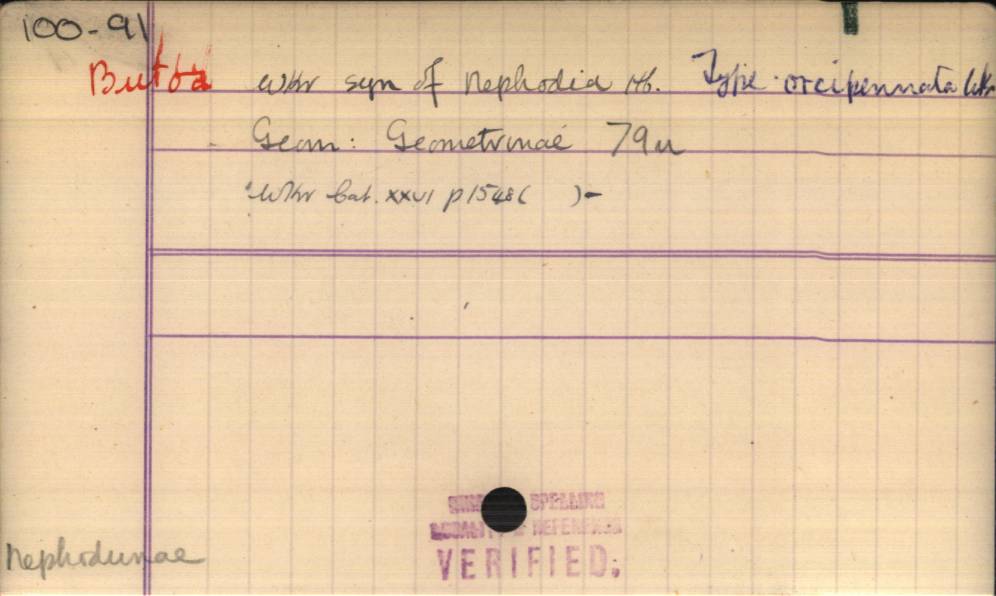 100-91
Butba wkr syn of Nephodia Hb. Type. orcipennata Wkr
Geom: Geometrinae 79u
Wkr Cat. xxvi p 1548 ( ) -
SPELLING
REFERENCE
VERIFIED.
Nephodunae